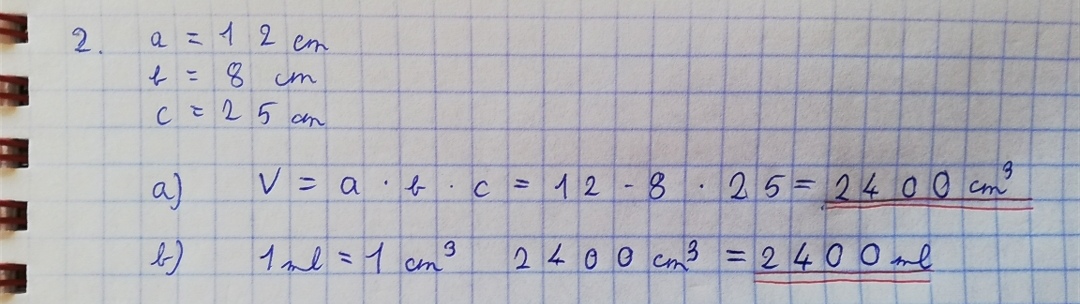 2. a = 12 cm
b = 8 cm
c = 25 cm
a) V = a · b · c = 12 - 8 · 25 = 2400 cm³
b) 1 ml = 1 cm³ 2400 cm³ = 2400 ml